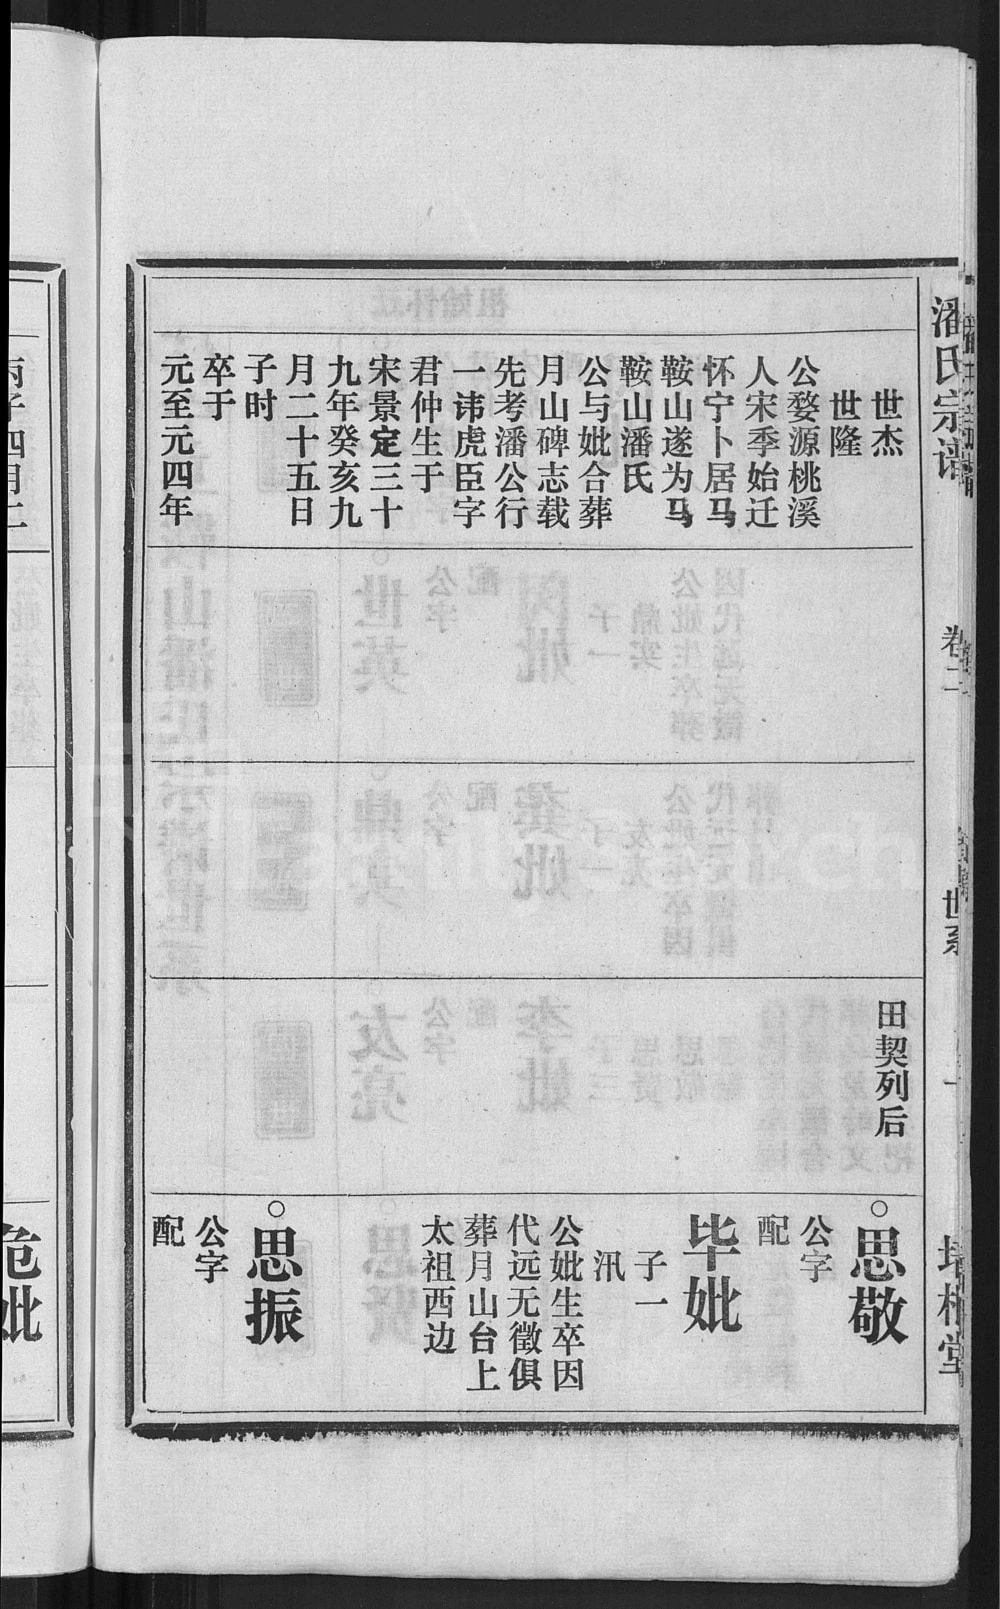 潘氏宗谱
卷二
世系
世杰
世隆
公婺源桃溪
人宋季始迁
怀宁卜居马
鞍山遂为马
鞍山潘氏
公与妣合葬
月山碑志载
先考潘公行
一讳虎臣字
君仲生于
宋景定三十
九年癸亥九
月二十五日
子时
卒于
元至元四年
田契列后
思敬
公字
配
毕妣
子一
汛
公妣生卒因
代远无徵俱
葬月山台上
太祖西边
思振
公字
配
丙子四月二
危妣